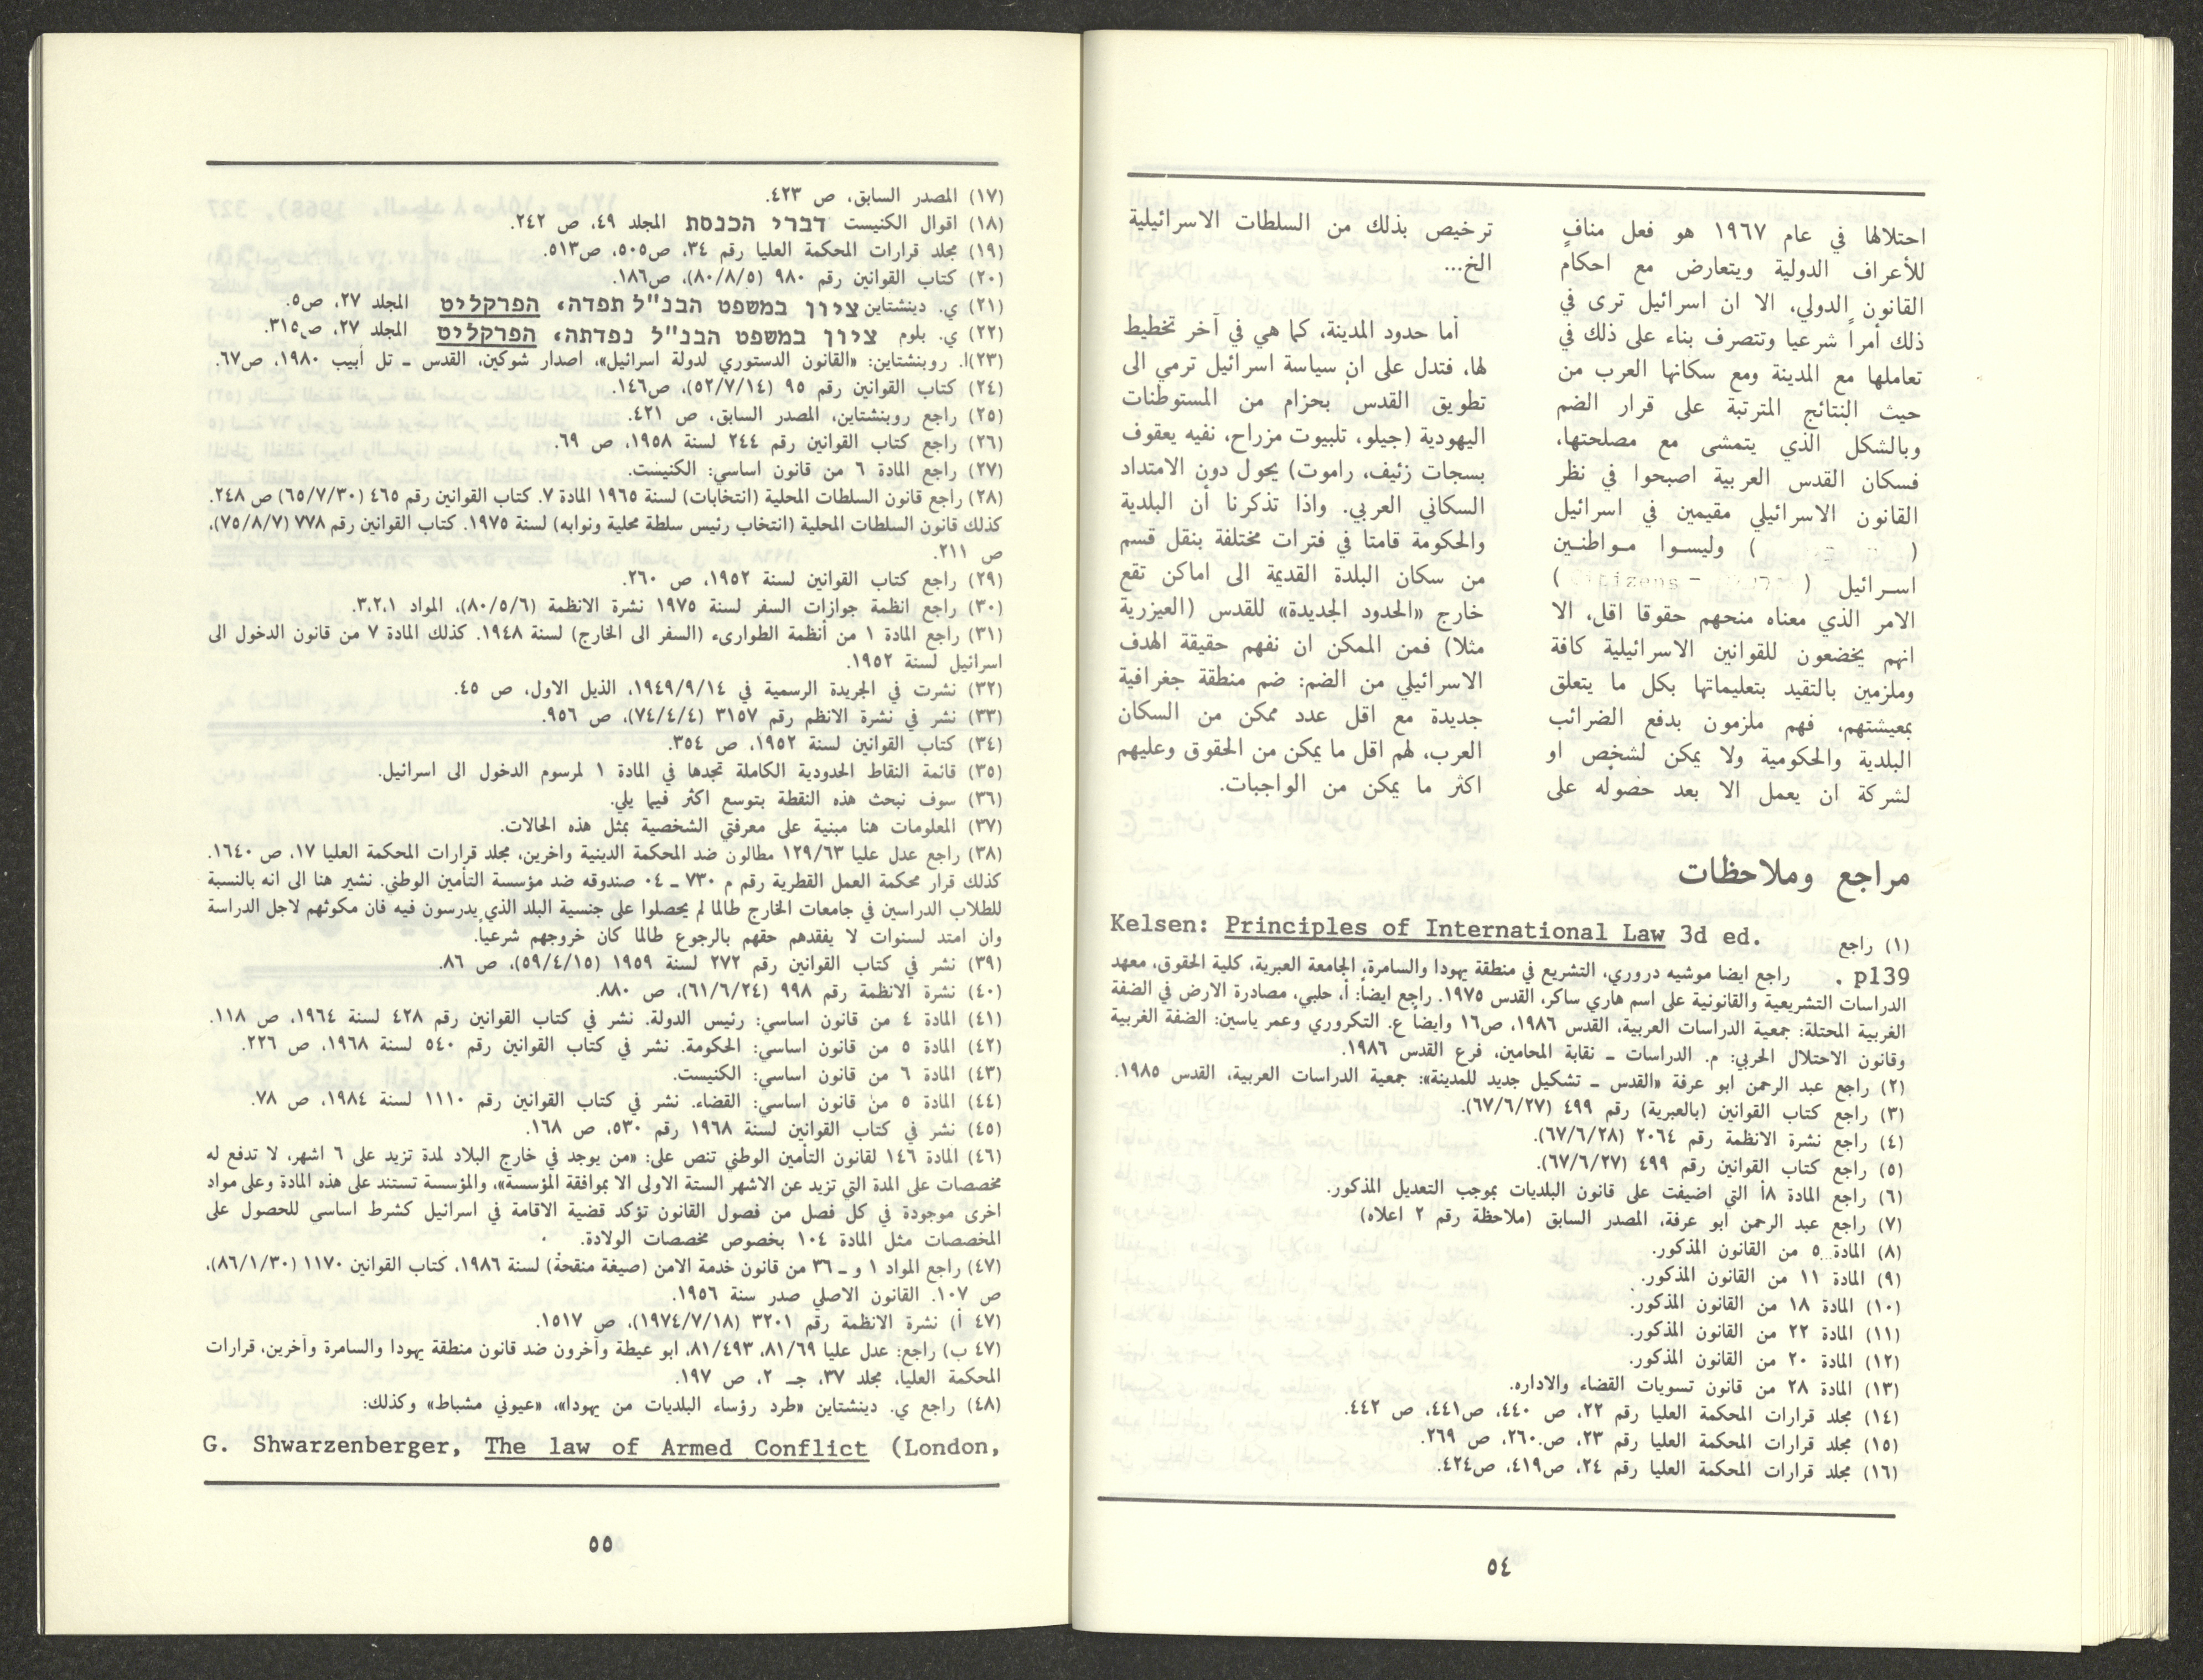 احتلالها في عام ١٩٦٧ هو فعل منافٍ
للأعراف الدولية ويتعارض مع احكام
القانون الدولي، الا ان اسرائيل ترى في
ذلك أمراً شرعيا وتتصرف بناء على ذلك في
تعاملها مع المدينة ومع سكانها العرب من
حيث النتائج المترتبة على قرار الضم
وبالشكل الذي يتمشى مع مصلحتها،
فسكان القدس العربية اصبحوا في نظر
القانون الاسرائيلي مقيمين في اسرائيل
( ) وليسوا مواطنين
اسرائيل ( citizens - )
الامر الذي معناه منحهم حقوقا اقل، الا
انهم يخضعون للقوانين الاسرائيلية كافة
وملزمين بالتقيد بتعليماتها بكل ما يتعلق
بمعيشتهم، فهم ملزمون بدفع الضرائب
البلدية والحكومية ولا يمكن لشخص او
لشركة ان يعمل الا بعد حصوله على
ترخيص بذلك من السلطات الاسرائيلية
الخ...
أما حدود المدينة، كما هي في آخر تخطيط
لها، فتدل على ان سياسة اسرائيل ترمي الى
تطويق القدس بحزام من المستوطنات
اليهودية (جيلو، تلبيوت مزراح، نفيه يعقوف
بسجات زئيف، راموت) يحول دون الامتداد
السكاني العربي. واذا تذكرنا أن البلدية
والحكومة قامتا في فترات مختلفة بنقل قسم
من سكان البلدة القديمة الى اماكن تقع
خارج «الحدود الجديدة» للقدس (العيزرية
مثلا) فمن الممكن ان نفهم حقيقة الهدف
الاسرائيلي من الضم: ضم منطقة جغرافية
جديدة مع اقل عدد ممكن من السكان
العرب، لهم اقل ما يمكن من الحقوق وعليهم
اكثر ما يمكن من الواجبات.
مراجع وملاحظات
(١) راجع Kelsen: Principles of International Law 3d ed.
p139 . راجع ايضا موشيه دروري، التشريع في منطقة يهودا والسامرة، الجامعة العبرية، كلية الحقوق، معهد
الدراسات التشريعية والقانونية على اسم هاري ساكر، القدس ١٩٧٥. راجع ايضاً: أ، حلبي، مصادرة الارض في الضفة
الغربية المحتلة: جمعية الدراسات العربية، القدس ١٩٨٦، ص١٦ وايضا ع. التكروري وعمر ياسين: الضفة الغربية
وقانون الاحتلال الحربي: م. الدراسات ـ نقابة المحامين، فرع القدس ١٩٨٦.
(٢) راجع عبد الرحمن ابو عرفة «القدس ـ تشكيل جديد للمدينة»: جمعية الدراسات العربية، القدس ١٩٨٥.
(٣) راجع كتاب القوانين (بالعبرية) رقم ٤٩٩ (٦٧/٦/٢٧).
(٤) راجع نشرة الانظمة رقم ٢٠٦٤ (٦٧/٦/٢٨).
(٥) راجع كتاب القوانين رقم ٤٩٩ (٦٧/٦/٢٧).
(٦) راجع المادة ٨أ التي اضيفت على قانون البلديات بموجب التعديل المذكور.
(٧) راجع عبد الرحمن ابو عرفة، المصدر السابق (ملاحظة رقم ٢ اعلاه)
(٨) المادة ٥ من القانون المذكور.
(٩) المادة ١١ من القانون المذكور.
(١٠) المادة ١٨ من القانون المذكور.
(١١) المادة ٢٢ من القانون المذكور.
(١٢) المادة ٢٠ من القانون المذكور.
(١٣) المادة ٢٨ من قانون تسويات القضاء والاداره.
(١٤) مجلد قرارات المحكمة العليا رقم ٢٢، ص ٤٤٠، ص٤٤١، ص ٤٤٢.
(١٥) مجلد قرارات المحكمة العليا رقم ٢٣، ص.٢٦٠، ص ٢٦٩.
(١٦) مجلد قرارات المحكمة العليا رقم ٢٤، ص٤١٩، ص٤٢٤.
٥٤
(١٧) المصدر السابق، ص ٤٢٣.
(١٨) اقوال الكنيست דברי הכנסת المجلد ٤٩، ص ٢٤٢.
(١٩) مجلد قرارات المحكمة العليا رقم ٣٤، ص٥٠٥، ص٥١٣.
(٢٠) كتاب القوانين رقم ٩٨٠ (٨٠/٨/٥)، ص١٨٦.
(٢١) ي. دينشتاين ציון במשפט הבנ"ל תפדה، הפרקליט المجلد ٢٧، ص٥.
(٢٢) ي. بلوم ציון במשפט הבנ"ל נפדתה، הפרקליט المجلد ٢٧، ص٣١٥.
(٢٣)ا. روبنشتاين: «القانون الدستوري لدولة اسرائيل»، اصدار شوكين، القدس ـ تل أبيب ١٩٨٠، ص٦٧.
(٢٤) كتاب القوانين رقم ٩٥ (٥٢/٧/١٤)، ص١٤٦.
(٢٥) راجع روبنشتاين، المصدر السابق، ص ٤٢١.
(٢٦) راجع كتاب القوانين رقم ٢٤٤ لسنة ١٩٥٨، ص ٦٩.
(٢٧) راجع المادة ٦ من قانون اساسي: الكنيست.
(٢٨) راجع قانون السلطات المحلية (انتخابات) لسنة ١٩٦٥ المادة ٧. كتاب القوانين رقم ٤٦٥ (٦٥/٧/٣٠) ص ٢٤٨.
كذلك قانون السلطات المحلية (انتخاب رئيس سلطة محلية ونوابه) لسنة ١٩٧٥. كتاب القوانين رقم ٧٧٨ (٧٥/٨/٧)،
ص ٢١١.
(٢٩) راجع كتاب القوانين لسنة ١٩٥٢، ص ٢٦٠.
(٣٠) راجع انظمة جوازات السفر لسنة ١٩٧٥ نشرة الانظمة (٨٠/٥/٦)، المواد ٣،٢،١.
(٣١) راجع المادة ١ من أنظمة الطوارىء (السفر الى الخارج) لسنة ١٩٤٨. كذلك المادة ٧ من قانون الدخول الى
اسرائيل لسنة ١٩٥٢.
(٣٢) نشرت في الجريدة الرسمية في ١٩٤٩/٩/١٤، الذيل الاول، ص ٤٥.
(٣٣) نشر في نشرة الانظم رقم ٣١٥٧ (٧٤/٤/٤)، ص ٩٥٦.
(٣٤) كتاب القوانين لسنة ١٩٥٢، ص ٣٥٤.
(٣٥) قائمة النقاط الحدودية الكاملة تجدها في المادة ١ لمرسوم الدخول الى اسرائيل.
(٣٦) سوف نبحث هذه النقطة بتوسع اكثر فيما يلي.
(٣٧) المعلومات هنا مبنية على معرفتي الشخصية بمثل هذه الحالات.
(٣٨) راجع عدل عليا ١٢٩/٦٣ مطالون ضد المحكمة الدينية واخرين، مجلد قرارات المحكمة العليا ١٧، ص ١٦٤٠.
كذلك قرار محكمة العمل القطرية رقم م ٧٣٠ ـ ٠٤ صندوقه ضد مؤسسة التأمين الوطني. نشير هنا الى انه بالنسبة
للطلاب الدراسين في جامعات الخارج طالما لم يحصلوا على جنسية البلد الذي يدرسون فيه فان مكوثهم لاجل الدراسة
وان امتد لسنوات لا يفقدهم حقهم بالرجوع طالما كان خروجهم شرعياً.
(٣٩) نشر في كتاب القوانين رقم ٢٧٢ لسنة ١٩٥٩ (٥٩/٤/١٥)، ص ٨٦.
(٤٠) نشرة الانظمة رقم ٩٩٨ (٦١/٦/٢٤)، ص ٨٨٠.
(٤١) المادة ٤ من قانون اساسي: رئيس الدولة. نشر في كتاب القوانين رقم ٤٢٨ لسنة ١٩٦٤، ص ١١٨.
(٤٢) المادة ٥ من قانون اساسي: الحكومة. نشر في كتاب القوانين رقم ٥٤٠ لسنة ١٩٦٨، ص ٢٢٦.
(٤٣) المادة ٦ من قانون اساسي: الكنيست.
(٤٤) المادة ٥ من قانون اساسي: القضاء. نشر في كتاب القوانين رقم ١١١٠ لسنة ١٩٨٤، ص ٧٨.
(٤٥) نشر في كتاب القوانين لسنة ١٩٦٨ رقم ٥٣٠، ص ١٦٨.
(٤٦) المادة ١٤٦ لقانون التأمين الوطني تنص على: «من يوجد في خارج البلاد لمدة تزيد على ٦ اشهر، لا تدفع له
مخصصات على المدة التي تزيد عن الاشهر الستة الاولى الا بموافقة المؤسسة»، والمؤسسة تستند على هذه المادة وعلى مواد
اخرى موجودة في كل فصل من فصول القانون تؤكد قضية الاقامة في اسرائيل كشرط اساسي للحصول على
المخصصات مثل المادة ١٠٤ بخصوص مخصصات الولادة.
(٤٧) راجع المواد ١ و ـ ٣٦ من قانون خدمة الامن (صيغة منقحة) لسنة ١٩٨٦، كتاب القوانين ١١٧٠ (٨٦/١/٣٠)،
ص ١٠٧. القانون الاصلي صدر سنة ١٩٥٦.
(٤٧ أ) نشرة الانظمة رقم ٣٢٠١ (١٩٧٤/٧/١٨)، ص ١٥١٧.
(٤٧ ب) راجع: عدل عليا ٨١/٦٩، ٨١/٤٩٣، ابو عيطة وآخرون ضد قانون منطقة يهودا والسامرة وآخرين، قرارات
المحكمة العليا، مجلد ٣٧، جـ ٢، ص ١٩٧.
(٤٨) راجع ي. دينشتاين «طرد رؤساء البلديات من يهودا»، «عيوني مشباط» وكذلك:
G. Shwarzenberger, The law of Armed Conflict (London,
٥٥